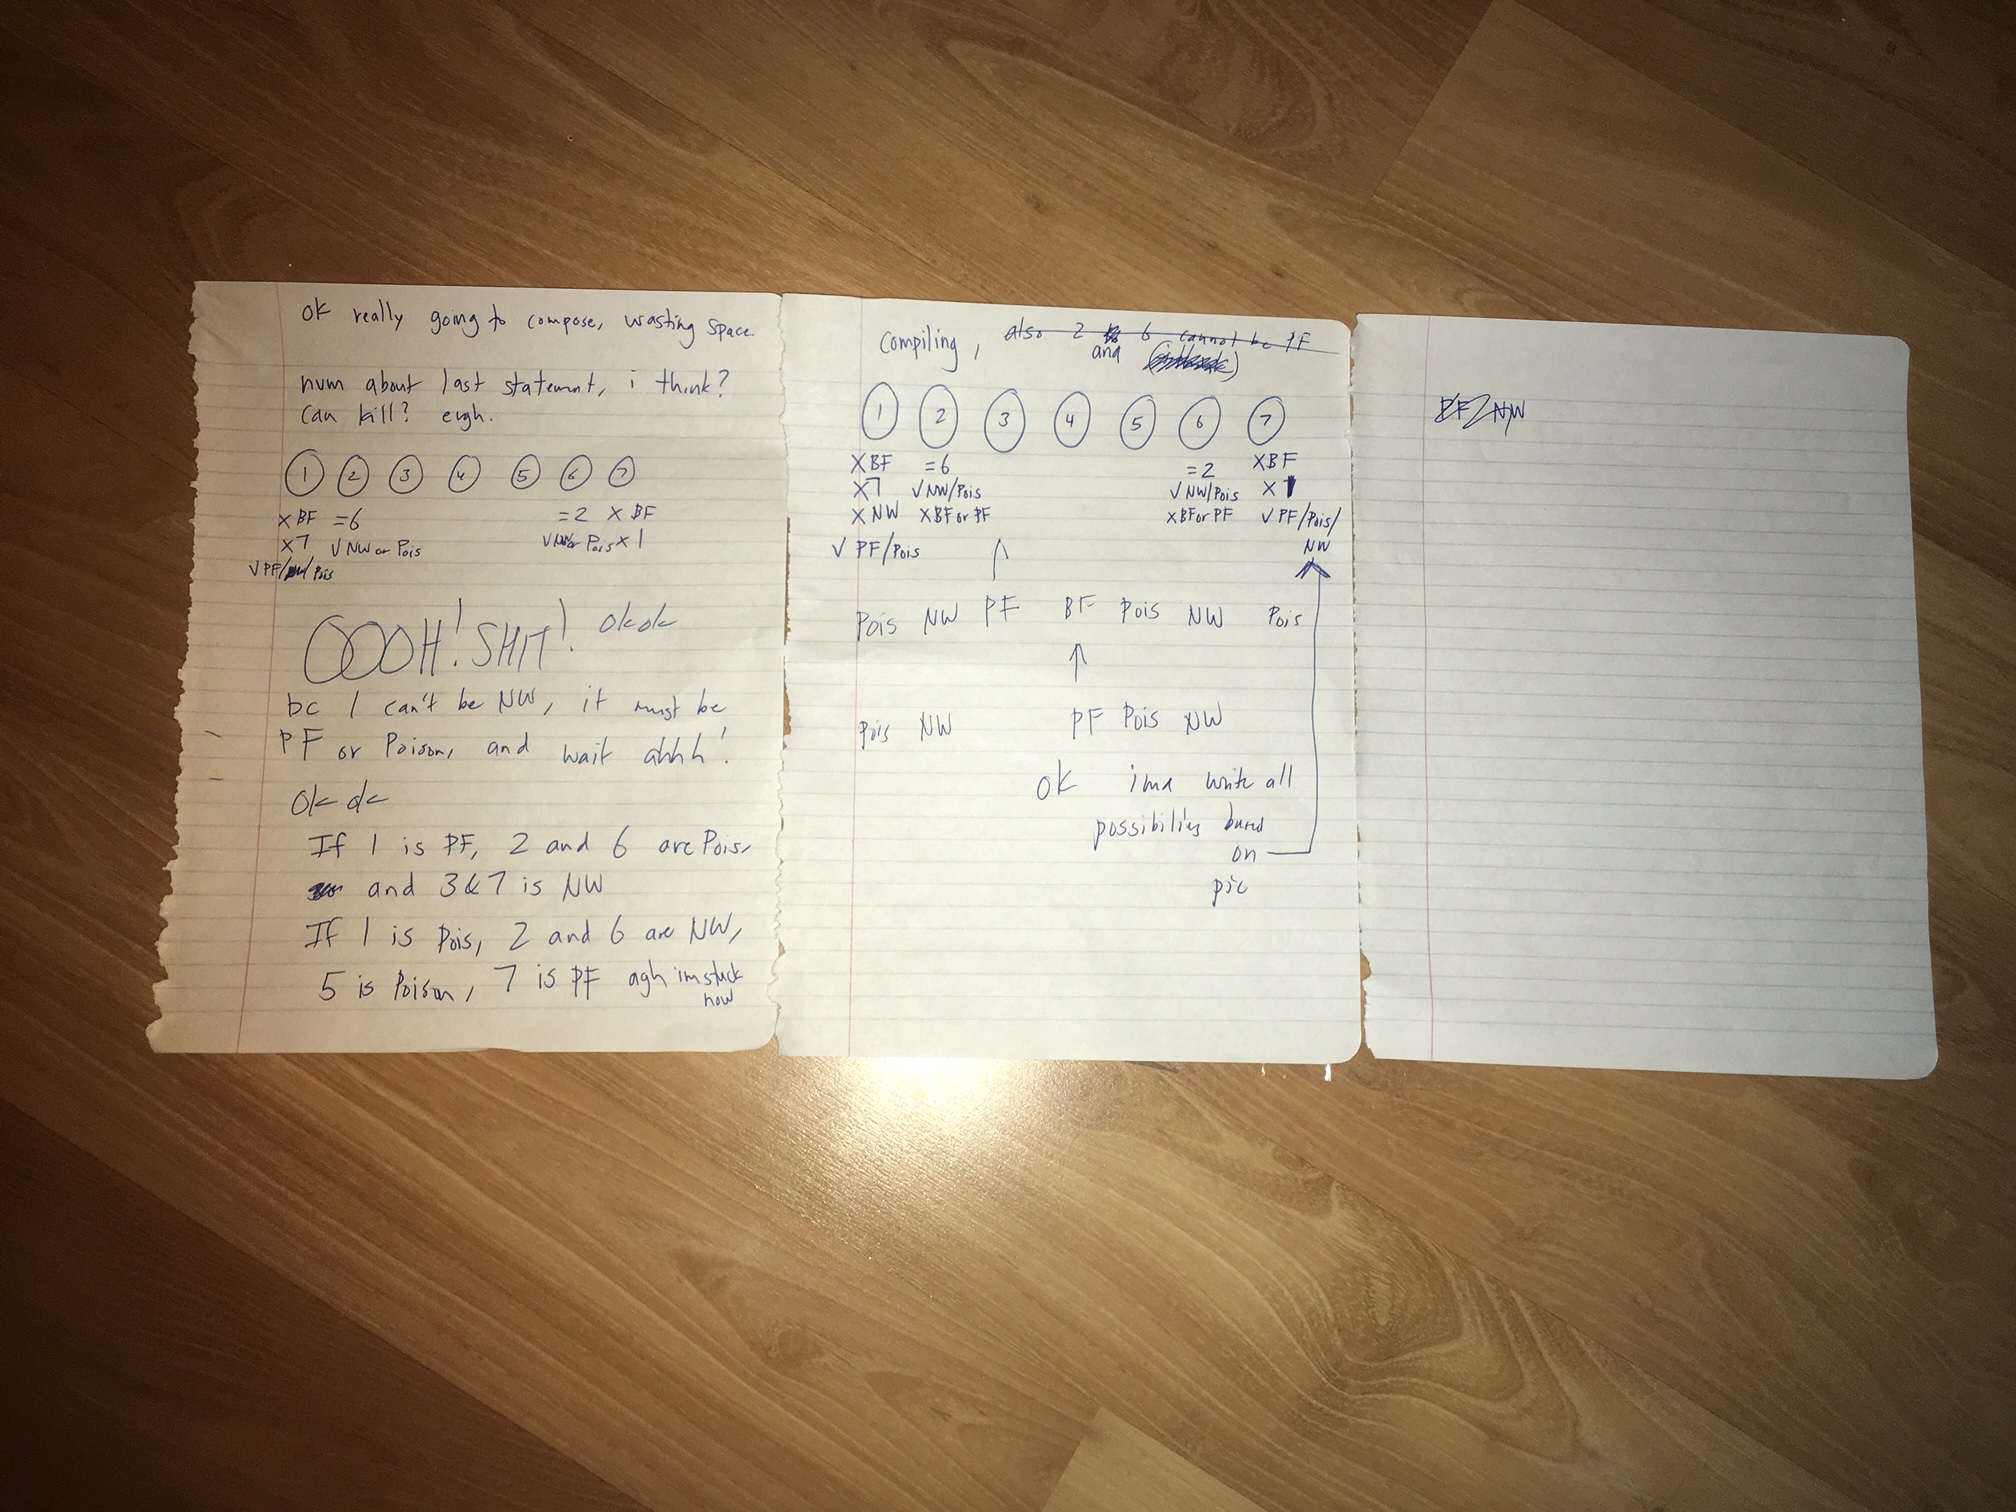 ok really going to compose, wasting space.
num about last statement, i think?
can kill? eugh.
1 2 3 4 5 6 7
X BF =6 =2 X BF
X7 √ NW or Pois √ or Pois X 1
√ PF/ /Pois
OOOH! SHIT! okok
bc 1 can't be NW, it must be
PF or Poison, and wait ahhh!
Ok ok
If 1 is PF, 2 and 6 are Pois,
and 3&7 is NW
If 1 is Pois, 2 and 6 are NW,
5 is Poison, 7 is PF agh im stuck
now
Compiling, also 2 6 cannot be PF
and
1 2 3 4 5 6 7
X BF =6 =2 X BF
X7 √ NW/Pois √ NW/Pois X 1
X NW X BF or PF X BF or PF √ PF/Pois/
√ PF/Pois NW
Pois NW PF BF Pois NW Pois
Pois NW PF Pois NW
ok ima write all
possibilities based
on
pic
PF/NW